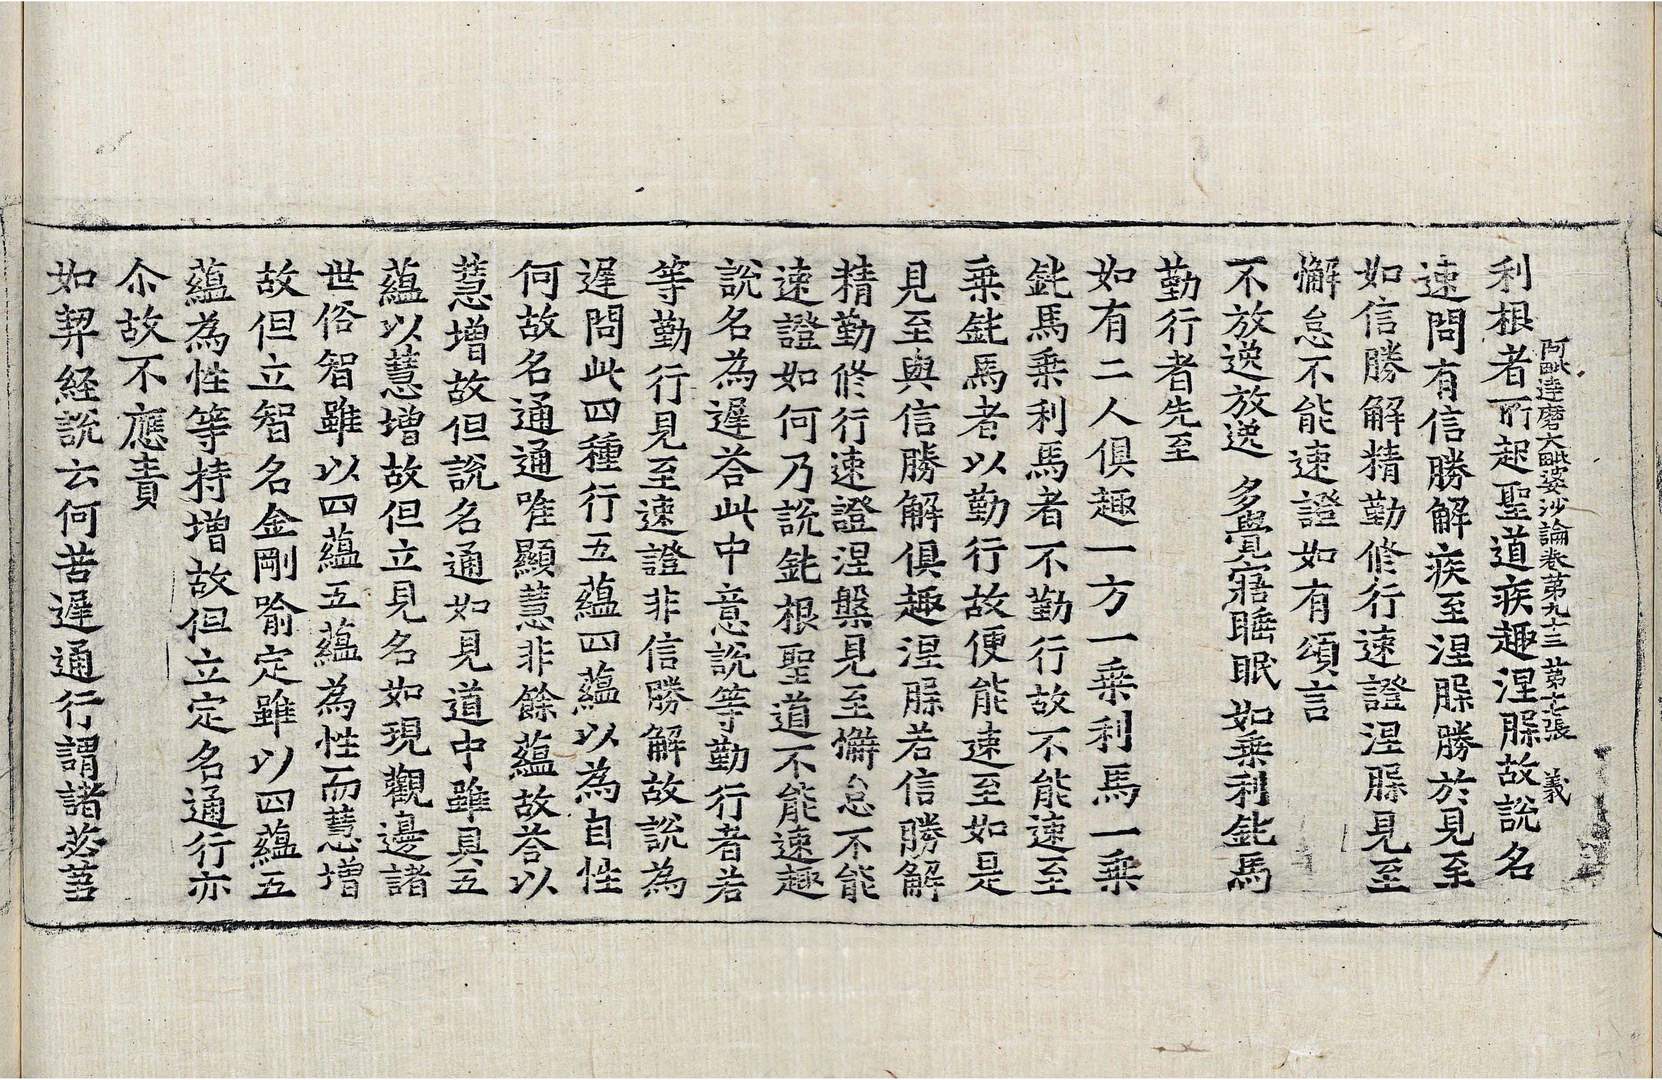 阿毗達磨大毗婆沙論卷第九十三 第七張 義
利根者所起聖道疾趣涅槃故說名
速問有信勝解疾至涅槃勝於見至
如信勝解精勤修行速證涅槃見至
懈怠不能速證如有頌言
不放逸放逸 多覺寤睡眠 如乘利鈍馬
勤行者先至
如有二人俱趣一方一乘利馬一乘
鈍馬乘利馬者不勤行故不能速至
乘鈍馬者以勤行故便能速至如是
見至與信勝解俱趣涅槃若信勝解
精勤修行速證涅槃見至懈怠不能
速證如何乃說鈍根聖道不能速趣
說名為遲答此中意說等勤行者若
等勤行見至速證非信勝解故說為
遲問此四種行五蘊四蘊以為自性
何故名通通唯顯慧非餘蘊故答以
慧增故但說名通如見道中雖具五
蘊以慧增故但立見名如現觀邊諸
世俗智雖以四蘊五蘊為性而慧增
故但立智名金剛喻定雖以四蘊五
蘊為性等持增故但立定名通行亦
尒故不應責
如契經說云何苦遲通行謂諸苾芻